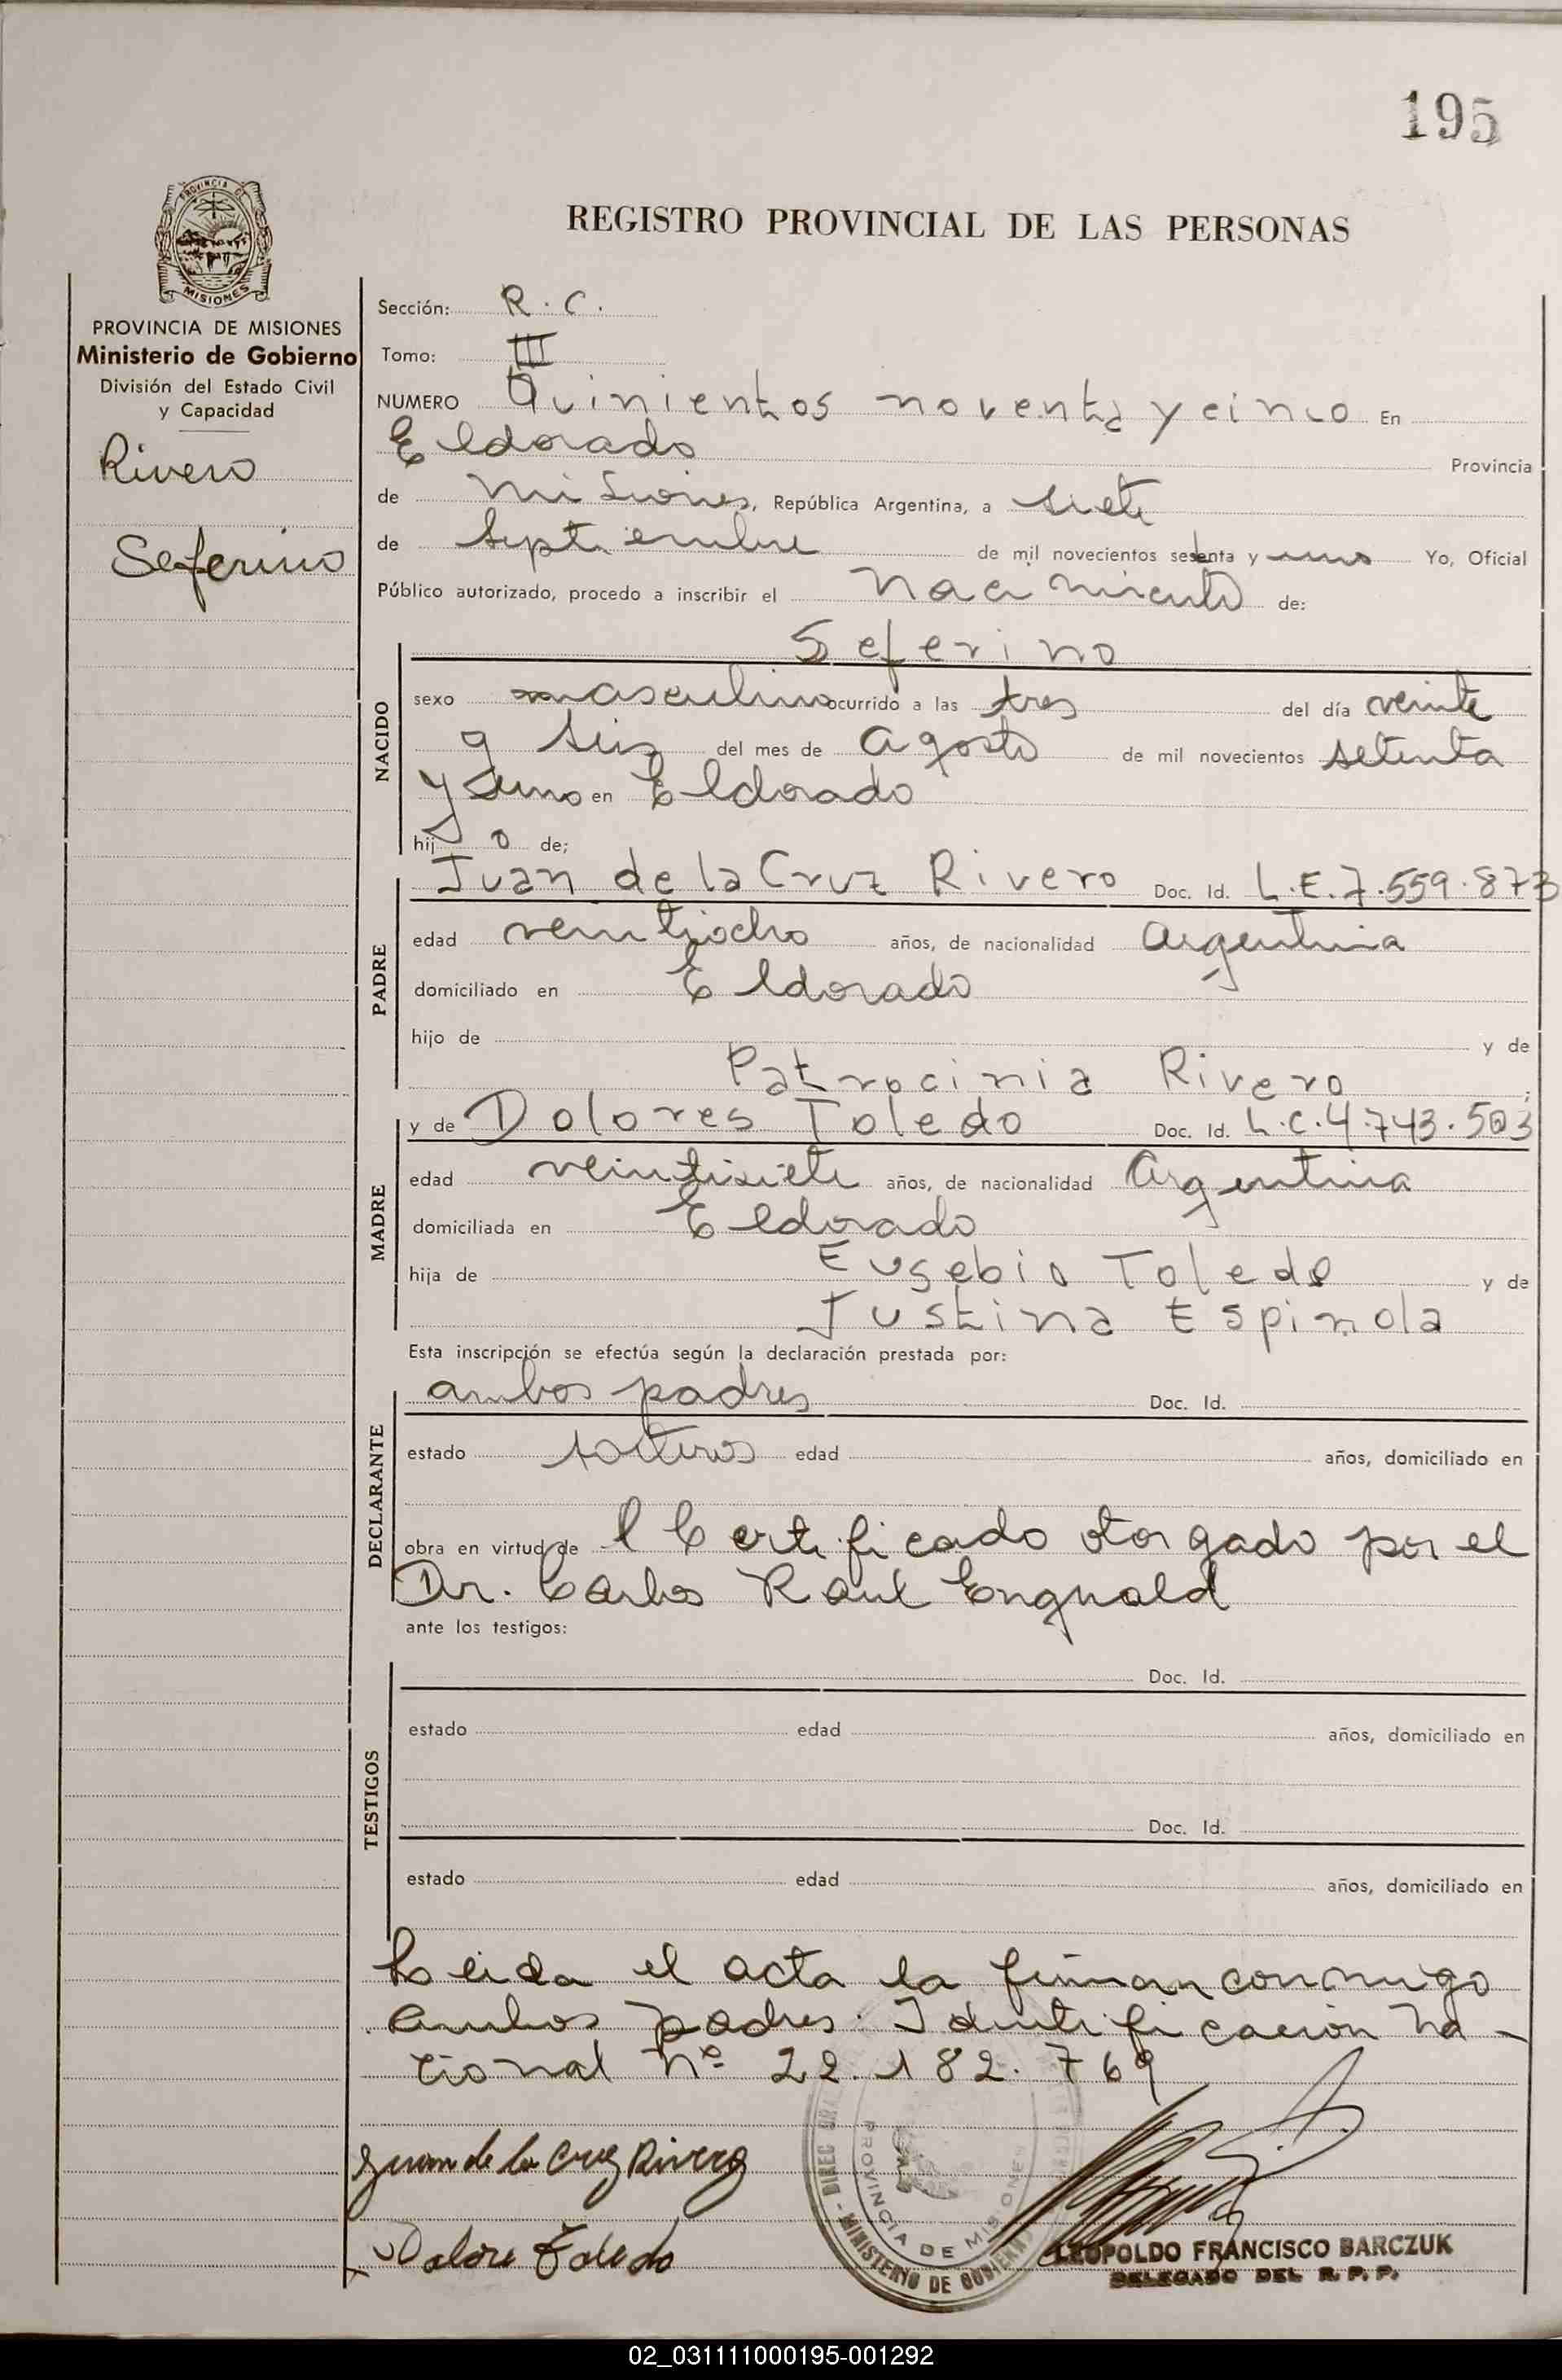 195
PROVINCIA DE
MISIONES
REGISTRO PROVINCIAL DE LAS PERSONAS
PROVINCIA DE MISIONES
Ministerio de Gobierno
División del Estado Civil
y Capacidad
Rivero
Seferino
Sección: R. C.
Tomo: III
NUMERO Quinientos noventa y cinco En
Eldorado Provincia
de Misiones, República Argentina, a siete
de septiembre de mil novecientos setenta y uno Yo, Oficial
Público autorizado, procedo a inscribir el nacimiento de:
Seferino
NACIDO
sexo masculino ocurrido a las tres del día veinte
y seis del mes de Agosto de mil novecientos setenta
y uno en Eldorado
hij o de;
Juan de la Cruz Rivero Doc. Id. L.E. 7.559.873
PADRE
edad veintiocho años, de nacionalidad Argentina
domiciliado en Eldorado
hijo de y de
Patrocinia Rivero
y de Dolores Toledo Doc. Id. L.C. 4.743.503
MADRE
edad veintisiete años, de nacionalidad Argentina
domiciliada en Eldorado
hija de Eusebio Toledo y de
Justina Espinola
Esta inscripción se efectúa según la declaración prestada por:
ambos padres Doc. Id.
DECLARANTE
estado solteros edad años, domiciliado en
obra en virtud de l Certificado otorgado por el
Dr. Carlos Raul Engwald
ante los testigos:
Doc. Id.
TESTIGOS
estado edad años, domiciliado en
Doc. Id.
estado edad años, domiciliado en
Leida el acta la firman conmigo
ambos padres. Identificación Na-
cional Nº 22.182.769
Juan de la Cruz Rivero
Dolore Toledo
PROVINCIA DE MISIONES
MINISTERIO DE GOBIERNO
LEOPOLDO FRANCISCO BARCZUK
DELEGADO DEL R. P. P.
02_031111000195-001292